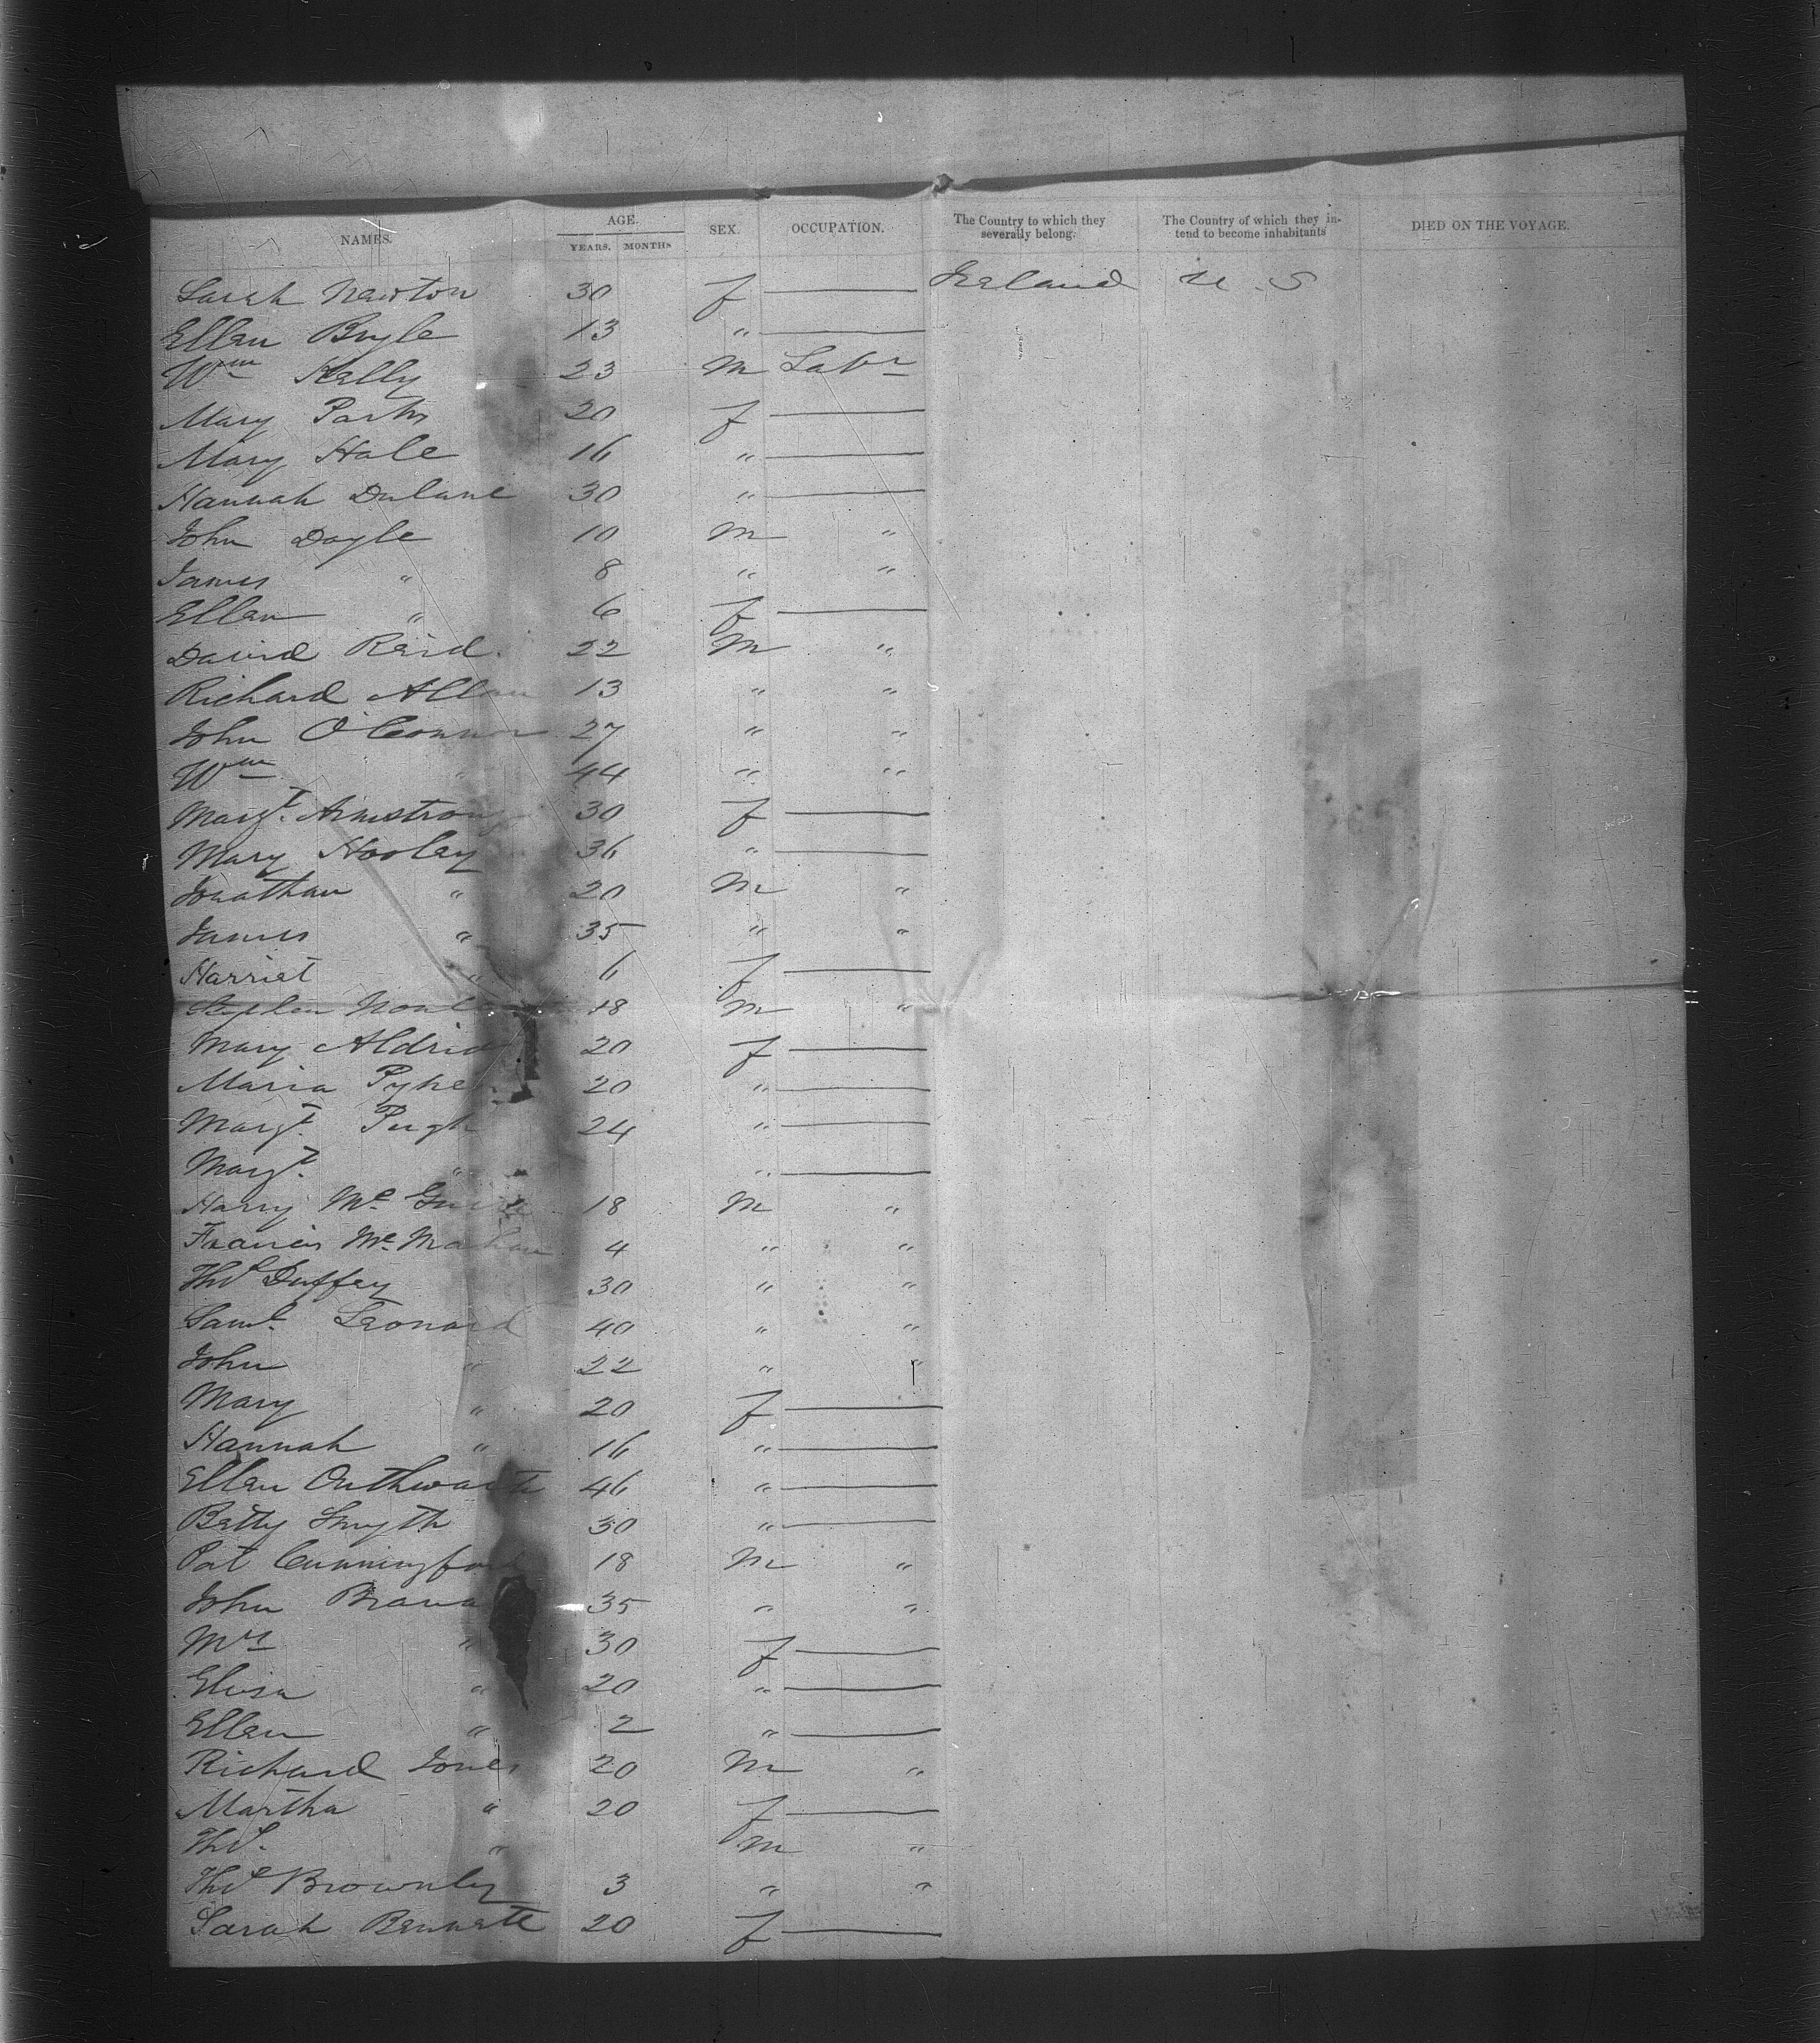 NAMES. AGE. YEARS. MONTHS SEX. OCCUPATION. The Country to which they severally belong. The Country of which they intend to become inhabitants DIED ON THE VOYAGE.
Sarah Newton 30 f — Ireland U.S
Ellen Boyle 13 " —
Wm Kelly 23 M Labr
Mary Parks 20 f —
Mary Hale 16 " —
Hannah Dulane 30 " —
John Doyle 10 M "
James " 8 " "
Ellen " 6 f —
David Reid. 22 M "
Richard Allen 13 " "
John O'Connor 27 " "
Wm " 44 " "
Margt. Armstrong 30 f —
Mary Hooley 36 " —
Jonathan " 20 M "
James " 35 " "
Harriet " 6 f —
Stephen 18 M "
Mary 20 f —
Maria 20 " —
Margt. Pugh 24 " —
Margt. " 1 " —
Harry 18 M "
Francis McMahan 4 " "
Thos Duffey 30 " "
Saml. Leonard 40 " "
John " 22 " "
Mary " 20 f —
Hannah " 16 " —
Ellen Outhwaite 46 " —
Betty Smyth 30 " —
Pat 18 M "
John 35 " "
Mrs " 30 f —
Elisa " 20 " —
Ellen " 2 " —
Richard Jones 20 M "
Martha " 20 f —
Thos. " M "
Thos Brownley 3 " "
Sarah Bennett 20 f —